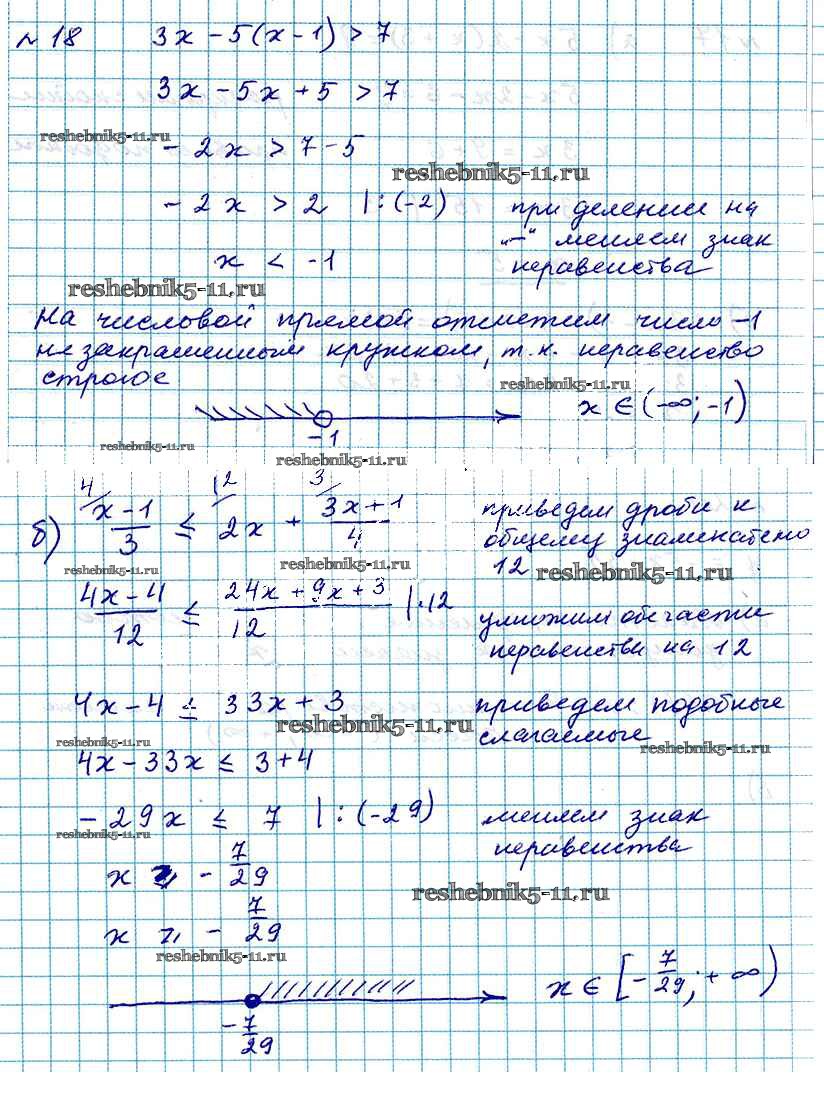 № 18 3x - 5(x - 1) > 7
3x - 5x + 5 > 7
reshebnik5-11.ru
- 2x > 7 - 5
reshebnik5-11.ru
- 2x > 2 | : (-2) при делении на
"-" меняем знак
x < -1 неравенства
reshebnik5-11.ru
На числовой прямой отметим число -1
не закрашенным кружком, т.к. неравенство
строгое reshebnik5-11.ru
x ∈ (-∞; -1)
-1
reshebnik5-11.ru
reshebnik5-11.ru
4/ 12/ 3/
б) (x - 1)/3 ≤ 2x + (3x + 1)/4 приведем дроби к
общему знаменателю
reshebnik5-11.ru reshebnik5-11.ru
12 reshebnik5-11.ru
(4x - 4)/12 ≤ (24x + 9x + 3)/12 | · 12
умножим обе части
неравенства на 12
4x - 4 ≤ 33x + 3 приведем подобные
слагаемые
reshebnik5-11.ru
reshebnik5-11.ru reshebnik5-11.ru
4x - 33x ≤ 3 + 4
- 29x ≤ 7 | : (-29) меняем знак
неравенства
reshebnik5-11.ru
x ≥ - 7/29
reshebnik5-11.ru
x ≥ - 7/29
reshebnik5-11.ru
x ∈ [- 7/29; + ∞)
- 7/29